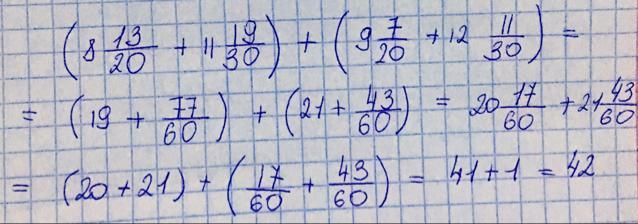 (8 13/20 + 11 19/30) + (9 7/20 + 12 11/30) =
= (19 + 77/60) + (21 + 43/60) = 20 17/60 + 21 43/60
= (20 + 21) + (17/60 + 43/60) = 41 + 1 = 42